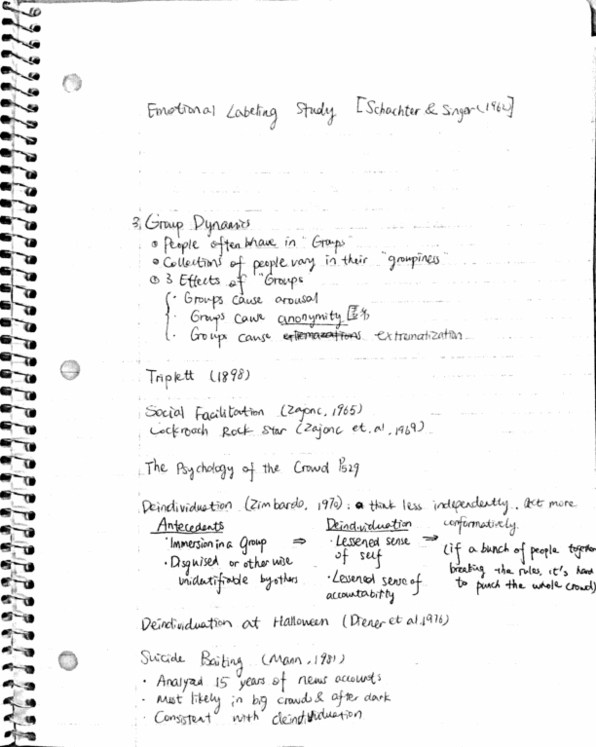 Emotional Labeling Study [Schachter & Singer (1962]
3. Group Dynamics
People often behave in "Groups"
Collections of people vary in their "groupiness"
3 Effects of "Groups
Groups cause arousal
Groups cause anonymity
Groups cause externatization
Triplett (1898)
Social Facilitation (Zajonc, 1965)
Cockroach Rock Star (Zajonc et. al, 1969)
The Psychology of the Crowd P529
Deindividuation (Zimbardo, 1970): think less independently. Act more
conformatively.
Antecedents
· Immersion in a Group ⇒
· Disguised or otherwise
unidentifiable by others
Deindividuation
· Lessened sense ⇒
of self
· Lessened sense of
accountability
(if a bunch of people together
breaking the rules, it's hard
to punch the whole crowd)
Deindividuation at Halloween (Diener et al, 1976)
Suicide Baiting (Mann, 1981)
· Analyzed 15 years of news accounts
· Most likely in big crowd & after dark
· Consistent with deindividuation